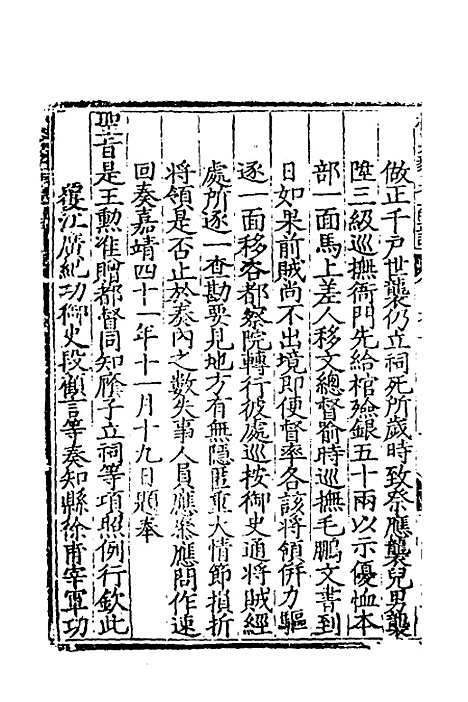 做正千户世襲仍立祠死所歲時致祭應襲兒男襲
陞三級巡撫衙門先給棺殮銀五十兩以示優恤本
部一面馬上差人移文總督喻時巡撫毛鵬文書到
日如果前賊尚不出境即便督率各該將領併力驅
逐一面移咨都察院轉行彼處巡按御史通將賊經
處所逐一查勘要見地方有無隱匿重大情節損折
將領是否止於奏內之數失事人員應叅應問作速
回奏嘉靖四十一年十一月十九日題奉
聖旨是王勲准贈都督同知廕子立祠等項照例行欽此
覆江廣紀功御史段顧言等奏知縣徐甫宰軍功